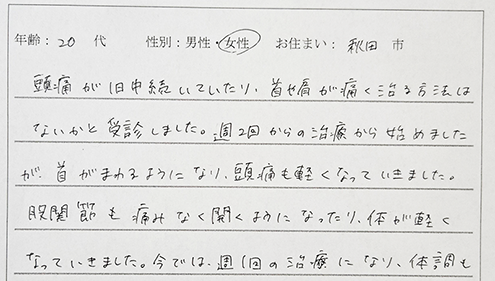 年齢：20 代 性別：男性・女性 お住まい：秋田 市
頭痛が1日中続いていたり、首や肩が痛く治る方法は
ないかと受診しました。週2回からの治療から始めました
が、首がまわるようになり、頭痛も軽くなっていきました。
股関節も痛みなく開くようになったり、体が軽く
なっていきました。今では、週1回の治療になり、体調も